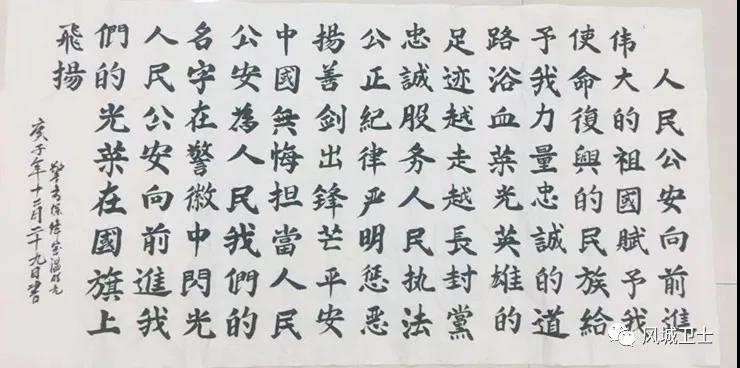 人民公安向前進
伟大的祖國賦予我
使命復興的民族給
予我力量忠誠的道
路浴血荣光英雄的
足迹越走越長封黨
忠誠服务人民执法
公正紀律严明惩恶
揚善剑出鋒芒平安
中國無悔担當人民
公安為人民我們的
名字在警徽中閃光
人民公安向前進我
們的光荣在國旗上
飛揚
警务保障室温
庚子年十二月二十九日書
凤城卫士